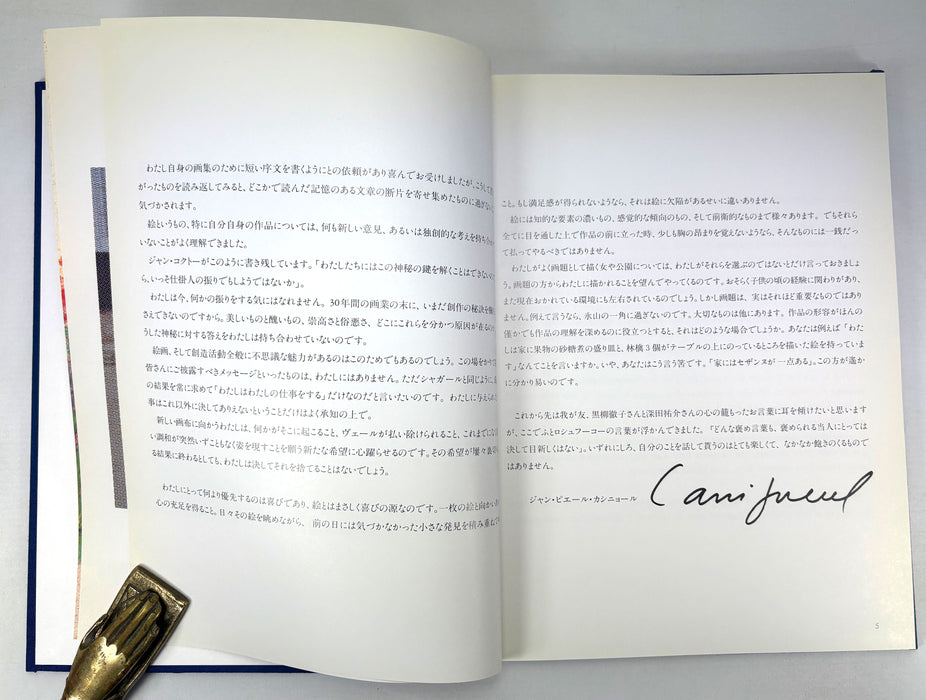 わたし自身の画集のために短い序文を書くようにとの依頼があり喜んでお受けしましたが、こうして
がったものを読み返してみると、どこかで読んだ記憶のある文章の断片を寄せ集めたものに過ぎない
気づかされます。
絵というもの、特に自分自身の作品については、何も新しい意見、あるいは独創的な考えを持ち合わ
いないことがよく理解できました。
ジャン・コクトーがこのように書き残しています。「わたしたちにはこの神秘の鍵を解くことはできない
ら、いっそ仕掛人の振りでもしようではないか」。
わたしは今、何かの振りをする気にはなれません。30年間の画業の末に、いまだ創作の秘訣を
さえできないのですから。美しいものと醜いもの、崇高さと俗悪さ、どこにこれらを分かつ原因が在るの
うした神秘に対する答えをわたしは持ち合わせていないのです。
絵画、そして創造活動全般に不思議な魅力があるのはこのためでもあるのでしょう。この場をかりて
皆さんにご披露すべきメッセージといったものは、わたしにはありません。ただシャガールと同じように、
の結果を常に求めて「わたしはわたしの仕事をする」だけなのだと言いたいのです。わたしに与えられ
事はこれ以外に決してありえないということだけはよく承知の上で。
新しい画布に向かうわたしは、何かがそこに起こること、ヴェールが払い除けられること、これまでにな
い調和が突然いずこもなく姿を現すことを願う新たな希望に心躍らせるのです。その希望が屢々
る結果に終わるとしても、わたしは決してそれを捨てることはないでしょう。
わたしにとって何より優先するのは喜びであり、絵とはまさしく喜びの源なのです。一枚の絵と向かい
心の充足を得ること。日々その絵を眺めながら、前の日には気づかなかった小さな発見を積み重ね
こと。もし満足感が得られないようなら、それは絵に欠陥があるせいに違いありません。
絵には知的な要素の濃いもの、感覚的な傾向のもの、そして前衛的なものまで様々あります。でもそれら
全てに目を通した上で作品の前に立った時、少しも胸の昂まりを覚えないようなら、そんなものには一銭だ
って払ってやるべきではありません。
わたしがよく画題として描く女や公園については、わたしがそれらを選ぶのではないとだけ言っておきまし
ょう。画題の方からわたしに描かれることを望んでやってくるのです。おそらく子供の頃の経験に関わりがあり、
また現在おかれている環境にも左右されているのでしょう。しかし画題は、実はそれほど重要なものではあり
ません。例えて言うなら、氷山の一角に過ぎないのです。大切なものは他にあります。作品の形容がほんの
僅かでも作品の理解を深めるのに役立つとすると、それはどのような場合でしょうか。あなたは例えば「わた
しは家に果物の砂糖煮の盛り皿と、林檎3個がテーブルの上にのっているところを描いた絵を持っていま
す」なんてことを言いますか。いや、あなたはこう言う筈です。「家にはセザンヌが一点ある」。この方が遙か
に分かり易いのです。
これから先は我が友、黒柳徹子さんと深田祐介さんの心の籠もったお言葉に耳を傾けたいと思います
が、ここでふとロシュフーコーの言葉が浮かんできました。「どんな褒め言葉も、褒められる当人にとっては
決して目新しくはない」。いずれにしろ、自分のことを話して貰うのはとても楽しくて、なかなか飽きのくるもので
はありません。
ジャン・ピエール・カシニョール
5